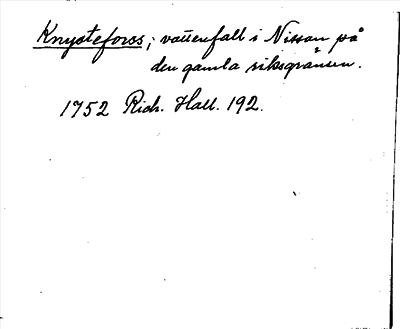 Knysteforss; vattenfall i Nissan på
den gamla riksgränsen.
1752 Rich. Hall. 192.